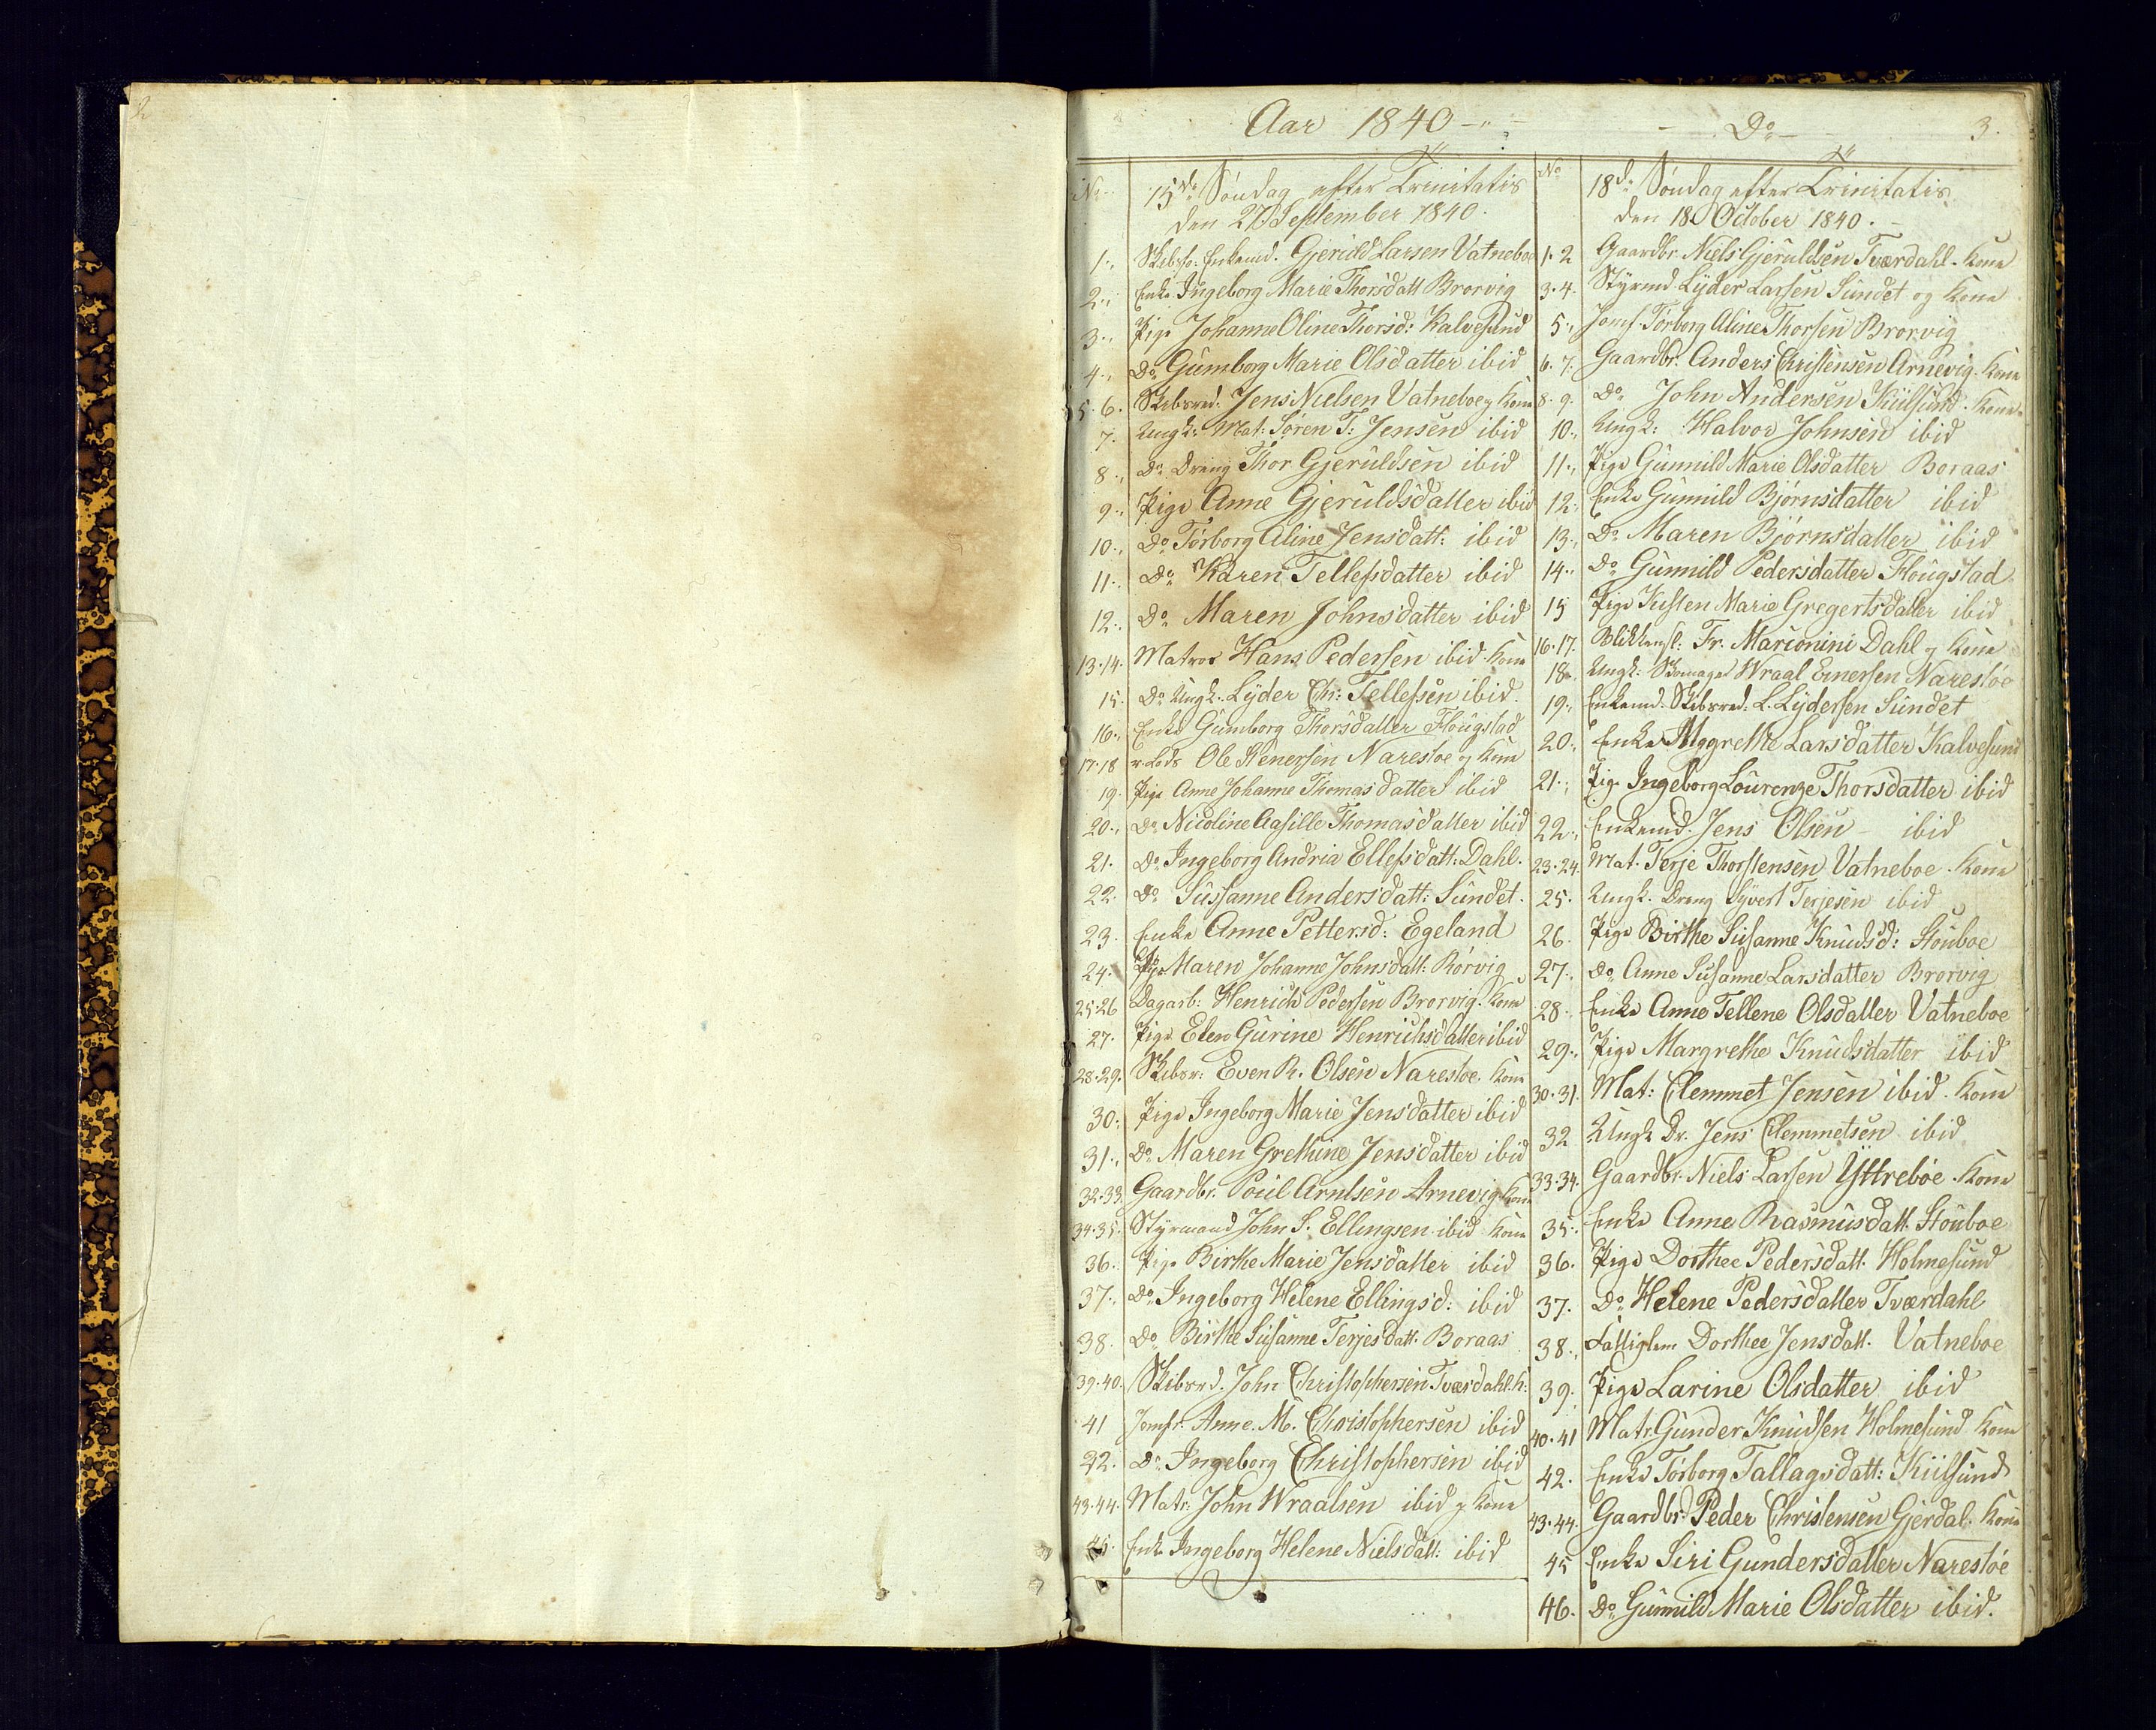 2
Aar 1840
Do
3.
No
15de Søndag efter Trinitatis
den 27 September 1840.
1. Skibsfo: Enkemd. Gjeruld Larsen Vatneboe
2. Enke Ingeborg Marie Thorsdatt Brorvig
3. Pige Johanne Oline Thorsd: Kalvesund
4. Do Gumborg Marie Olsdatter ibid
5. 6. Skibsred. Jens Nielsen Vatneboe og Kone
7. Ungk: Mat: Søren T: Jensen ibid
8. Do Dreng Thor Gjeruldsen ibid
9. Pige Anne Gjeruldsdatter ibid
10. Do Torborg Aline Jensdatt: ibid
11. Do Karen Tellefsdatter ibid
12. Do Maren Johnsdatter ibid
13.14. Matros Hans Pedersen ibid Kone
15. Do Ungk. Lyder Chr: Tellefsen ibid.
16. Enke Gumborg Thorsdatter Flougstad
17.18 Lods Ole Stenersen Narestoe og Kone
19. Pige Anne Johanne Thomasdatter ibid
20. Do Nicoline Aasille Thomasdatter ibid
21. Do Ingeborg Andria Ellefsdatt: Dahl.
22. Do Susanne Andersdatt: Sundet.
23. Enke Anne Pettersd: Egeland
24. Pige Maren Johanne Johnsdatt: Rørvig
25 26 Dagarb: Henrich Pedersen Brorvig. Kone
27. Pige Elen Gurine Henrichsdatter ibid
28.29. Skibsr: Even R. Olsen Narestoe. Kone
30. Pige Ingeborg Marie Jensdatter ibid
31. Do Maren Grethine Jensdatter ibid
32.33. Gaardbr. Poul Arntsen Arnevig Kone
34.35. Styrmand John S. Ellingsen ibid Kone
36. Pige Birthe Marie Jensdatter ibid
37. Do Ingeborg Helene Ellingsd: ibid
38. Do Birthe Susanne Terjesdatt. Boraas
39.40. Skibsrd. John Christophersen Tværdahl. K:
41 Jomfr. Anne. M. Christophersen ibid
42. Do Ingeborg Christophersen ibid
43.44. Matr: John Wraalsen ibid og Kone
45. Enke Ingeborg Helene Nielsdatt: ibid
No
18de Søndag efter Trinitatis
den 18 October 1840.
1. 2 Gaardbr. Niels Gjeruldsen Tværdahl. Kone
3.4. Styrmd Lyder Larsen Sundet og Kone
5. Jomf. Torborg Aline Thorsen Brorvig
6.7. Gaardbr. Anders Christensen Arnevig. Kone
8.9. Do John Andersen Kiilsund. Kone
10. Ungk: Halvor Johnsen ibid
11. Pige Gunnild Marie Olsdatter Boraas
12. Enke Gunnild Bjørnsdatter ibid
13. Do Maren Bjørnsdatter ibid
14. Do Gunnild Pedersdatter Flougstad
15 Pige Kirsten Marie Gregertsdatter ibid
16.17. Fr. Marionini Dahl og Kone
18. Ungk: Skomager Wraal Einersen Narestöe
19. Enkemd. Skibsred: L. Lydersen Sundet
20. Enke Mggrethe Larsdatter Kalvesund
21. Pige Ingeborg Lourenze Thorsdatter ibid
22. Enkemd. Jens Olsen - ibid
23.24. Mat. Terje Thorstensen Vatneboe. Kone
25. Ungk. Dreng Syvert Terjesen ibid
26. Pige Birthe Susanne Knudsd: Stouboe
27. Do Anne Susanne Larsdatter Brorvig
28. Enke Anne Tellene Olsdatter Vatneboe
29. Pige Margrethe Knudsdatter ibid
30.31. Mat: Clemmet Jensen ibid. Kone
32 Ungk Dr. Jens Clemmetsen ibid
33.34. Gaardbr. Niels Larsen Yttreboe. Kone
35. Enke Anne Rasmusdatt. Stouboe
36. Pige Dorthee Pedersdatt. Holmesund
37. Do Helene Pedersdatter Tværdahl
38. Fattiglem Dorthee Jensdatt. Vatneboe
39. Pige Larine Olsdatter ibid
40.41 Matr. Gunder Knudsen Holmesund Kone
42. Enke Torborg Tallagsdatt: Kiilsund
43.44. Gaardbr. Peder Christensen Gjerdal. Kone
45 Enke Siri Gundersdatter Narestöe
46. Do Gunnild Marie Olsdatter ibid.